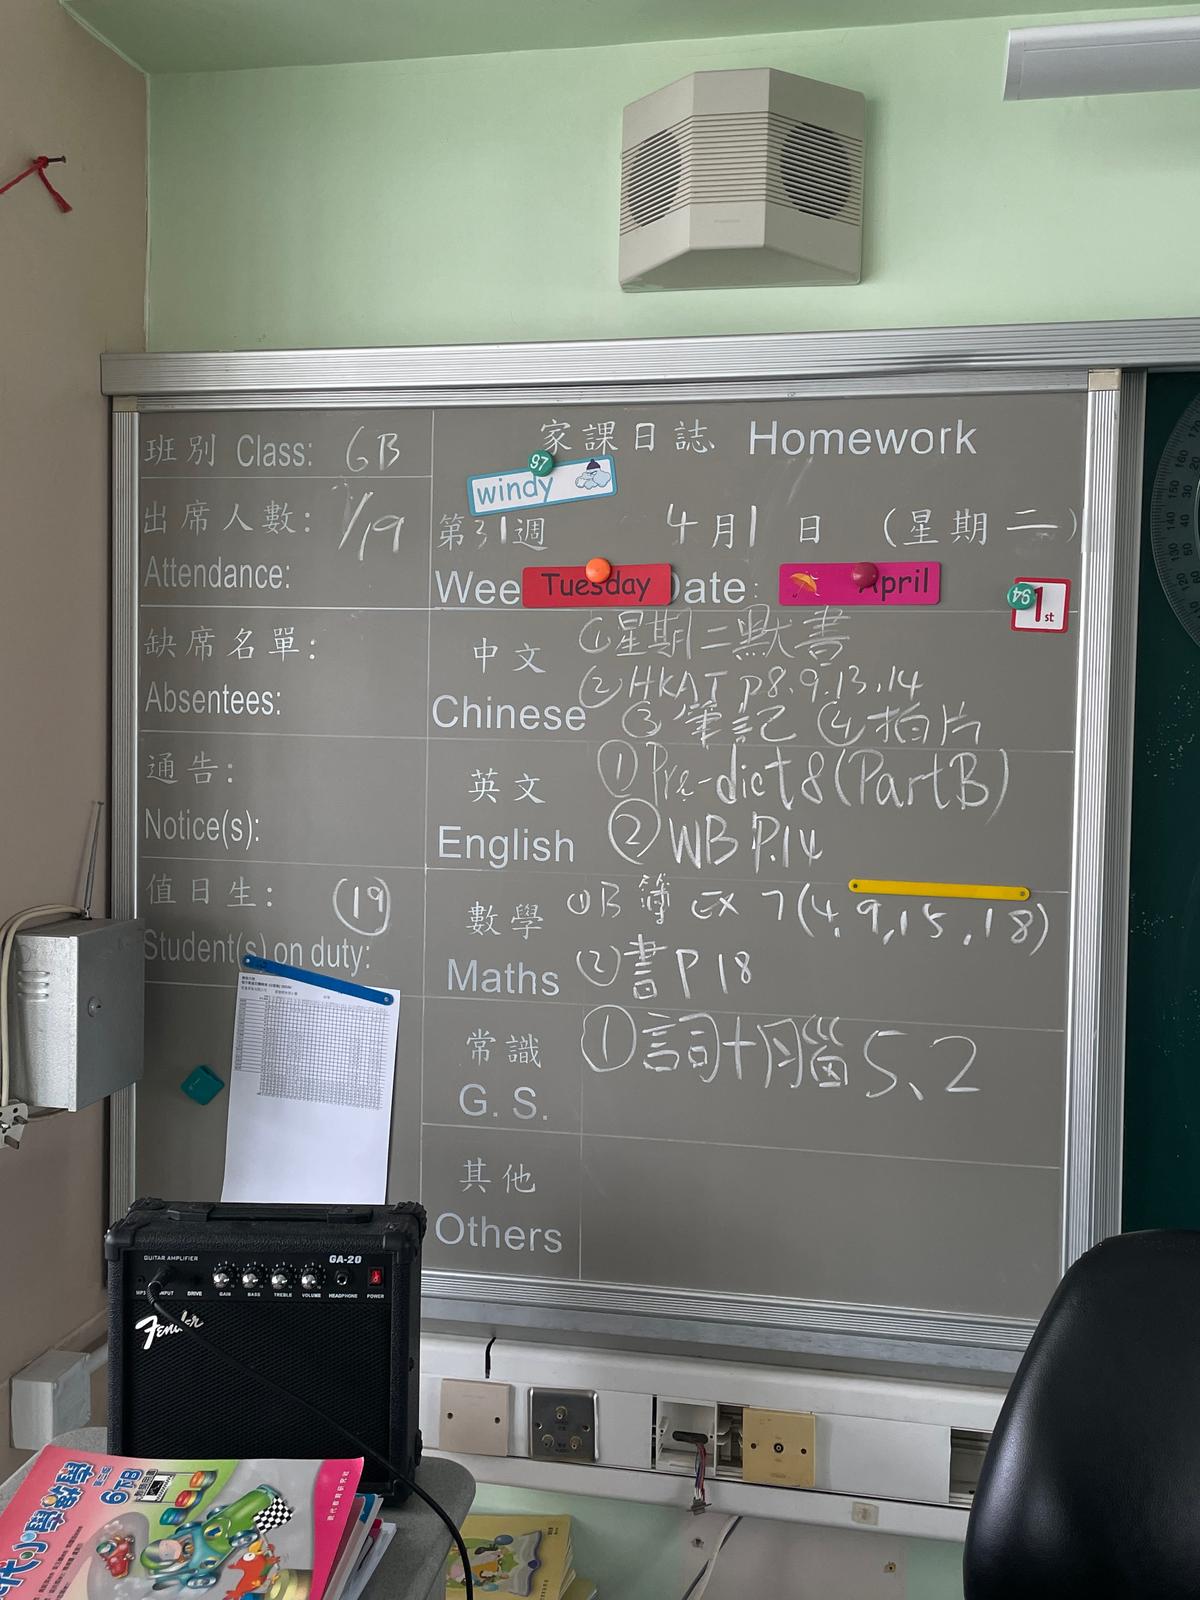 班別 Class: 6B
出席人數: /19
Attendance:
缺席名單:
Absentees:
通告:
Notice(s):
值日生: 19
Student(s) on duty:
家課日誌 Homework
97
windy
第31週 4月1日 (星期二)
Wee Tuesday Date: April
94
1st
中文 ①星期二默書
②HKAT p8.9.13.14
Chinese ③筆記 ④拍片
英文 ①Pre-dict 8 (Part B)
English ②WB P.14
數學 ①B簿 EX 7(4,9,15,18)
Maths ②書P18
常識 ①詞+腦5、2
G. S.
其他
Others
GUITAR AMPLIFIER GA-20
INPUT DRIVE GAIN BASS TREBLE VOLUME HEADPHONE POWER
Fender
6下B